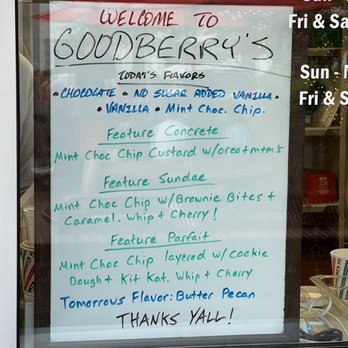 WELCOME TO
GOODBERRY'S
TODAY'S FLAVORS
• CHOCOLATE • NO SUGAR ADDED VANILLA •
• VANILLA • Mint Choc. Chip.
Feature Concrete
Mint Choc Chip Custard w/oreo+m+m's
Feature Sundae
Mint Choc Chip w/Brownie Bites +
Caramel. Whip + Cherry!
Feature Parfait
Mint Choc Chip layered w/cookie
Dough + Kit Kat. Whip + Cherry
Tomorrows Flavor: Butter Pecan
THANKS YALL!
Fri & Sa
Sun -
Fri & S